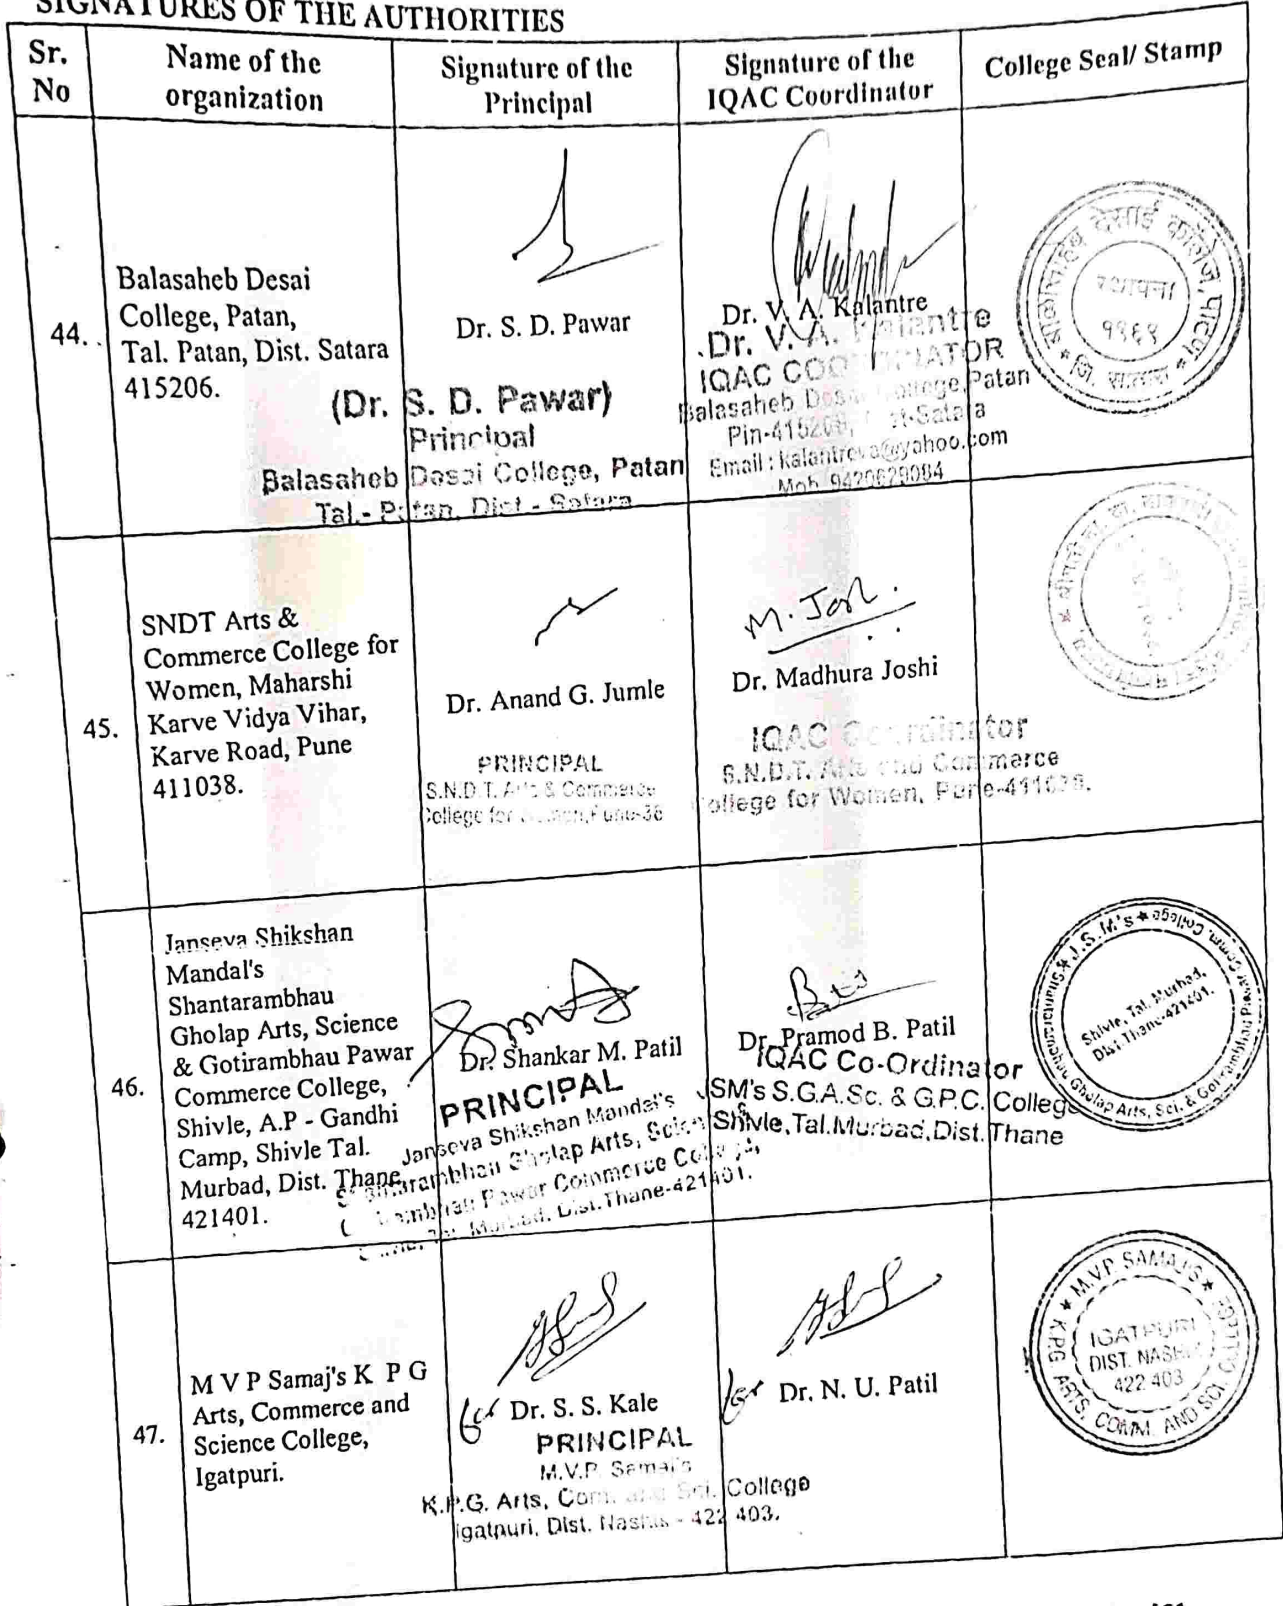 SIGNATURES OF THE AUTHORITIES
Sr.
No
Name of the
organization
Signature of the
Principal
Signature of the
IQAC Coordinator
College Seal/ Stamp
44.
Balasaheb Desai
College, Patan,
Tal. Patan, Dist. Satara
415206.
Dr. S. D. Pawar
(Dr. S. D. Pawar)
Principal
Balasaheb Desai College, Patan
Tal.- Patan, Dist - Satara
Dr. V. A. Kalantre
Dr. V. A. Kalantre
IQAC COORDINATOR
Balasaheb Desai College, Patan
Pin-415206, Dist-Satara
Email : kalantreva@yahoo.com
Mob. 9420629084
बाळासाहेब देसाई कॉलेज, पाटण
★ जि. सातारा ★
स्थापना
45.
SNDT Arts &
Commerce College for
Women, Maharshi
Karve Vidya Vihar,
Karve Road, Pune
411038.
Dr. Anand G. Jumle
PRINCIPAL
S.N.D.T. Arts & Commerce
College for Women, Pune-38
M. Joshi.
Dr. Madhura Joshi
IQAC Coordinator
S.N.D.T. Arts and Commerce
College for Women, Pune-411038.
46.
Janseva Shikshan
Mandal's
Shantarambhau
Gholap Arts, Science
& Gotirambhau Pawar
Commerce College,
Shivle, A.P - Gandhi
Camp, Shivle Tal.
Murbad, Dist. Thane.
421401.
Dr. Shankar M. Patil
PRINCIPAL
Janseva Shikshan Mandal's
Shantarambhau Gholap Arts, Science
Gotirambhau Pawar Commerce College,
Shivle, Tal. Murbad, Dist. Thane-421401.
Dr. Pramod B. Patil
IQAC Co-Ordinator
JSM's S.G.A.Sc. & G.P.C. College
Shivle, Tal. Murbad, Dist. Thane
★ J.S.M's ★ Shantarambhau Gholap Arts, Sci. & Gotirambhau Pawar Comm. College
Shivle, Tal. Murbad,
Dist. Thane-421401.
47.
M V P Samaj's K P G
Arts, Commerce and
Science College,
Igatpuri.
for Dr. S. S. Kale
PRINCIPAL
M.V.P. Samaj's
K.P.G. Arts, Com. and Sci. College
Igatpuri, Dist. Nashik - 422 403.
for Dr. N. U. Patil
★ M.V.P. SAMAJ'S ★
K.P.G. ARTS, COMM. AND SCI. COLLEGE
IGATPURI
DIST. NASHIK
422 403